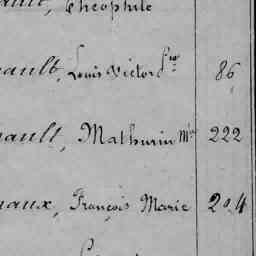 Théophile
ault, Louis Victor 86
ault, Mathurin 222
aux, François Marie 204